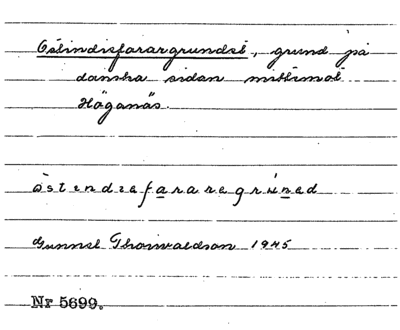 Ostindiefarargrundet, grund på
danska sidan mittimot
Höganäs.
östındıefararegrund
Gunnel Thorwaldson 1945
Nr 5699.